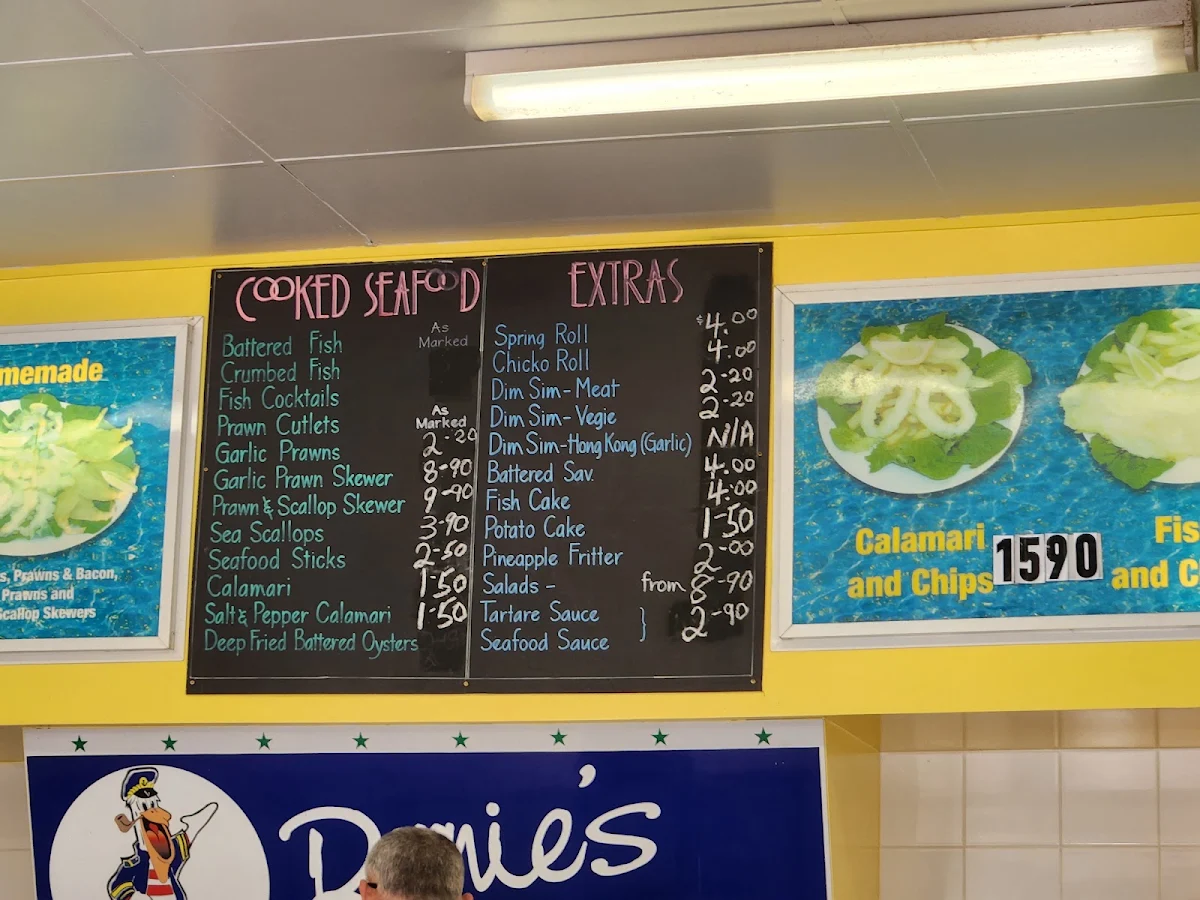 memade
s, Prawns & Bacon,
Prawns and
Scallop Skewers
COOKED SEAFOOD
Battered Fish As Marked
Crumbed Fish
Fish Cocktails
Prawn Cutlets As Marked
Garlic Prawns 2-20
Garlic Prawn Skewer 8-90
Prawn & Scallop Skewer 9-90
Sea Scallops 3-90
Seafood Sticks 2-50
Calamari 1-50
Salt & Pepper Calamari 1-50
Deep Fried Battered Oysters
EXTRAS
Spring Roll $4.00
Chicko Roll 4.00
Dim Sim - Meat 2-20
Dim Sim - Vegie 2-20
Dim Sim - Hong Kong (Garlic) N/A
Battered Sav. 4.00
Fish Cake 4.00
Potato Cake 1-50
Pineapple Fritter 2-00
Salads - from 8-90
Tartare Sauce } 2-90
Seafood Sauce
Calamari
and Chips 1590
Fis
and C